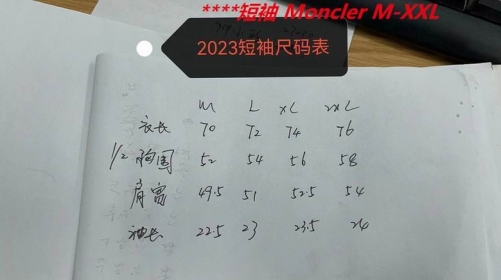 ****短袖 Moncler M-XXL
2023短袖尺码表
M L XL 2XL
衣长 70 72 74 76
1/2胸围 52 54 56 58
肩宽 49.5 51 52.5 54
袖长 22.5 23 23.5 24